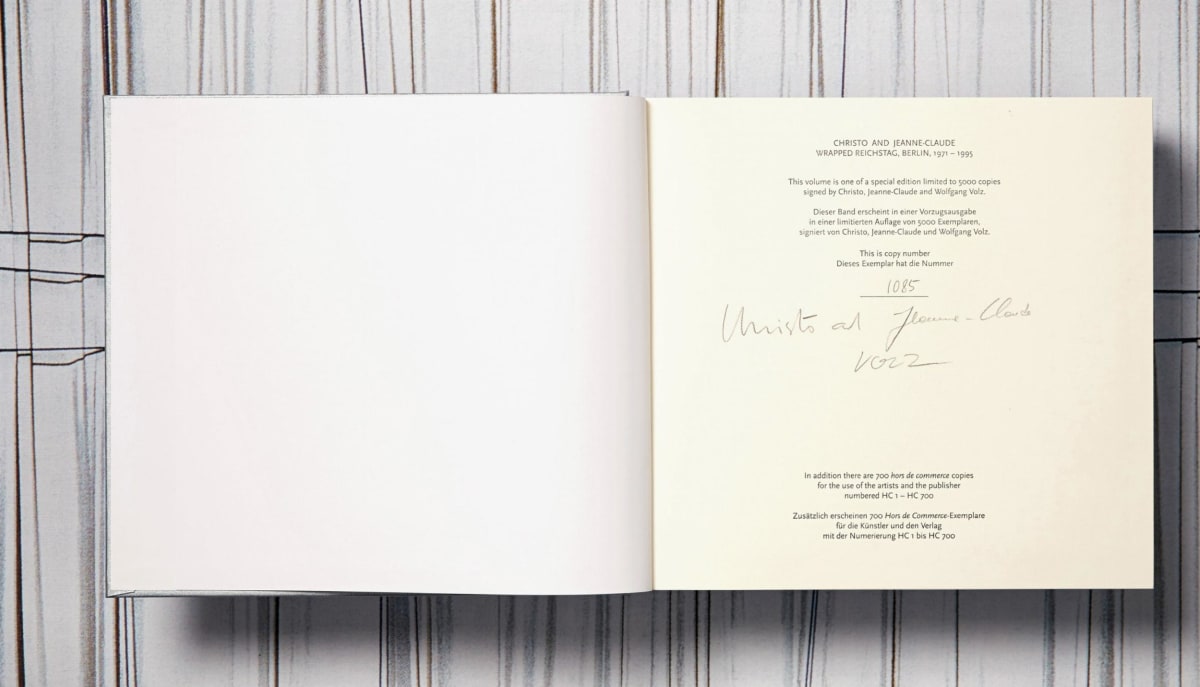 CHRISTO AND JEANNE-CLAUDE
WRAPPED REICHSTAG, BERLIN, 1971 – 1995
This volume is one of a special edition limited to 5000 copies
signed by Christo, Jeanne-Claude and Wolfgang Volz.
Dieser Band erscheint in einer Vorzugsausgabe
in einer limitierten Auflage von 5000 Exemplaren,
signiert von Christo, Jeanne-Claude und Wolfgang Volz.
This is copy number
Dieses Exemplar hat die Nummer
1085
Christo and Jeanne-Claude
VOLZ
In addition there are 700 hors de commerce copies
for the use of the artists and the publisher
numbered HC 1 – HC 700
Zusätzlich erscheinen 700 Hors de Commerce-Exemplare
für die Künstler und den Verlag
mit der Numerierung HC 1 bis HC 700